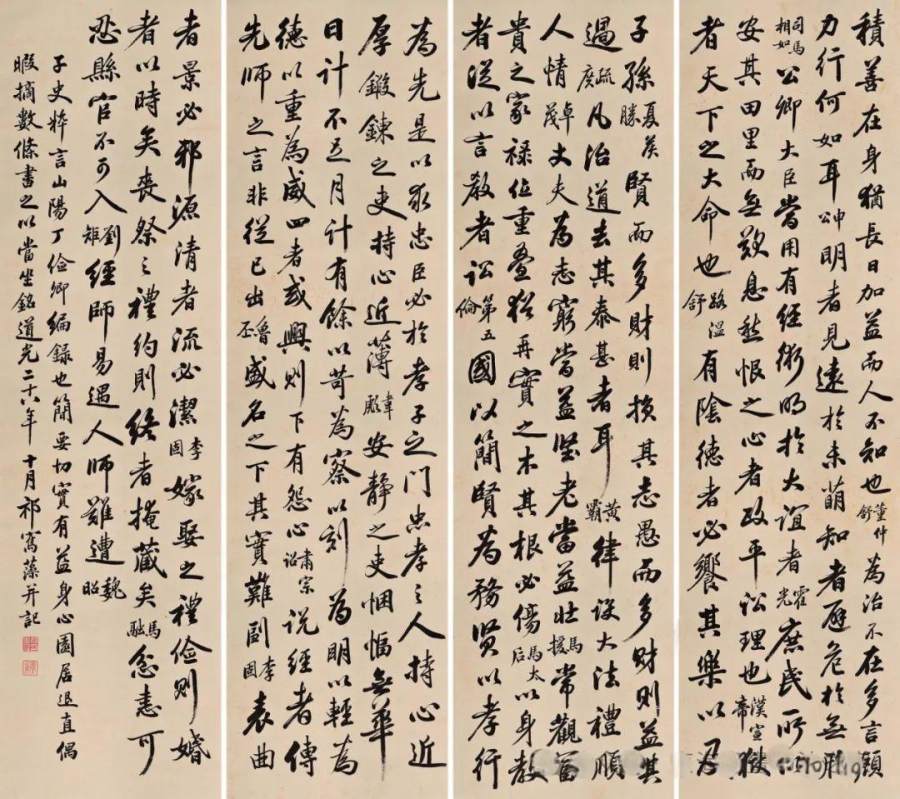 積善在身猶長日加益而人不知也董仲舒為治不在多言顧
力行何如耳申明者見遠於未萌知者避危於無形
司馬相如公卿大臣當用有經術明於大誼者霍光庶民所以
安其田里而無歎息愁恨之心者政平訟理也漢宣帝獄
者天下之大命也路溫舒有陰德者必饗其樂以及
子孫夏侯勝賢而多財則損其志愚而多財則益其
過疏廣凡治道去其泰甚者耳黃霸律設大法禮順
人情卓茂丈夫為志窮當益堅老當益壯馬援常觀富
貴之家祿位重疊猶再實之木其根必傷馬太后以身教
者從以言教者訟第五倫國以簡賢為務賢以孝行
為先是以求忠臣必於孝子之門忠孝之人持心近
厚鍛鍊之吏持心近薄韋彪安靜之吏悃愊無華
日計不足月計有餘以苛為察以刻為明以輕為
德以重為威四者或興則下有怨心肅宗詔說經者傳
先師之言非從己出魯丕盛名之下其實難副李固表曲
者景必邪源清者流必潔李固嫁娶之禮儉則婚
者以時矣喪祭之禮約則終者掩藏矣馬融忿恚可
忍縣官不可入劉矩經師易遇人師難遭魏昭
子史粹言山陽丁儉卿編錄也簡要切實有益身心園居退直偶
暇摘數條書之以當坐銘道光二十六年十月祁寯藻并記